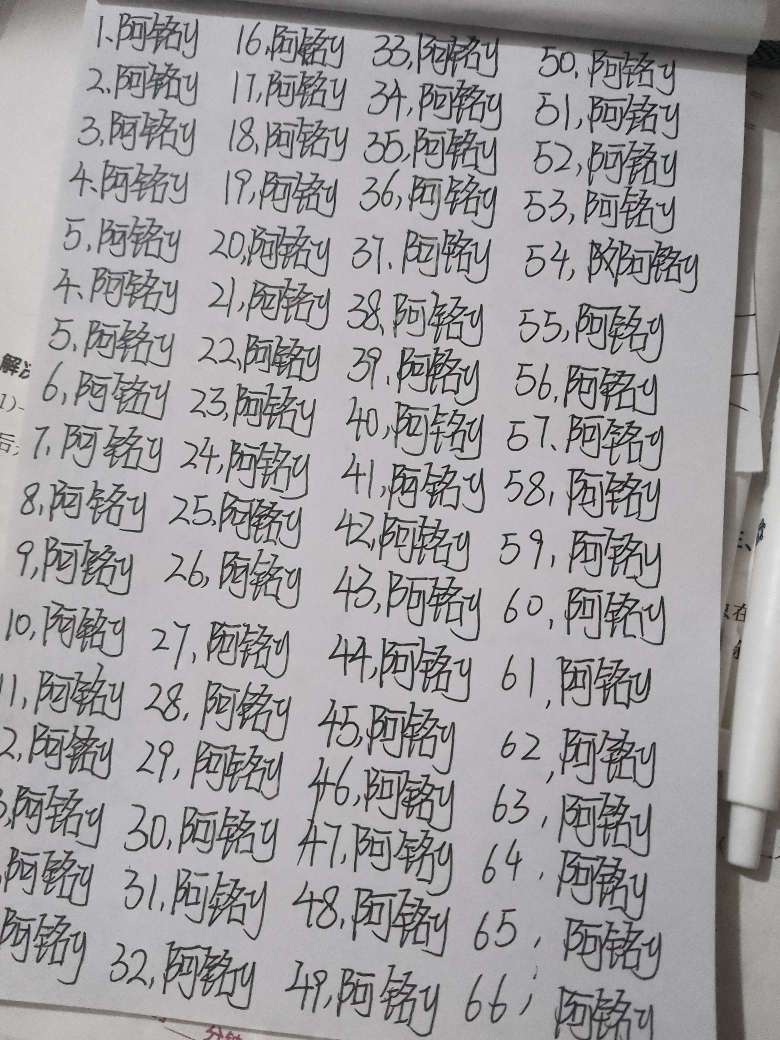 1、阿铭y
2、阿铭y
3、阿铭y
4、阿铭y
5、阿铭y
4、阿铭y
5、阿铭y
6、阿铭y
7、阿铭y
8、阿铭y
9,阿铭y
10,阿铭y
11,阿铭y
2、阿铭y
3,阿铭y
,阿铭y
阿铭y
16,阿铭y
17,阿铭y
18,阿铭y
19,阿铭y
20,阿铭y
21,阿铭y
22,阿铭y
23,阿铭y
24,阿铭y
25,阿铭y
26,阿铭y
27,阿铭y
28,阿铭y
29,阿铭y
30,阿铭y
31,阿铭y
32,阿铭y
33,阿铭y
34,阿铭y
35,阿铭y
36,阿铭y
37、阿铭y
38、阿铭y
39、阿铭y
40,阿铭y
41,阿铭y
42,阿铭y
43,阿铭y
44,阿铭y
45,阿铭y
46,阿铭y
47,阿铭y
48,阿铭y
49,阿铭y
50,阿铭y
51,阿铭y
52,阿铭y
53,阿铭y
54,阿铭y
55,阿铭y
56,阿铭y
57、阿铭y
58,阿铭y
59,阿铭y
60,阿铭y
61,阿铭y
62,阿铭y
63,阿铭y
64,阿铭y
65,阿铭y
66,阿铭y
解决
1)
后
三、
在